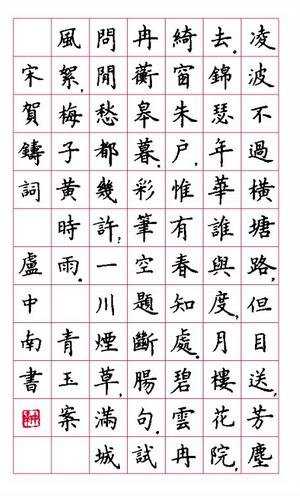 凌波不過橫塘路,但目送,芳塵
去。錦瑟年華誰與度,月樓花院,
綺窗朱户,惟有春知處。碧雲冉
冉蘅皋暮,彩筆空題斷腸句。試
問閒愁都幾許,一川煙草,滿城
風絮,梅子黃時雨。 青玉案
宋賀鑄詞 盧中南書